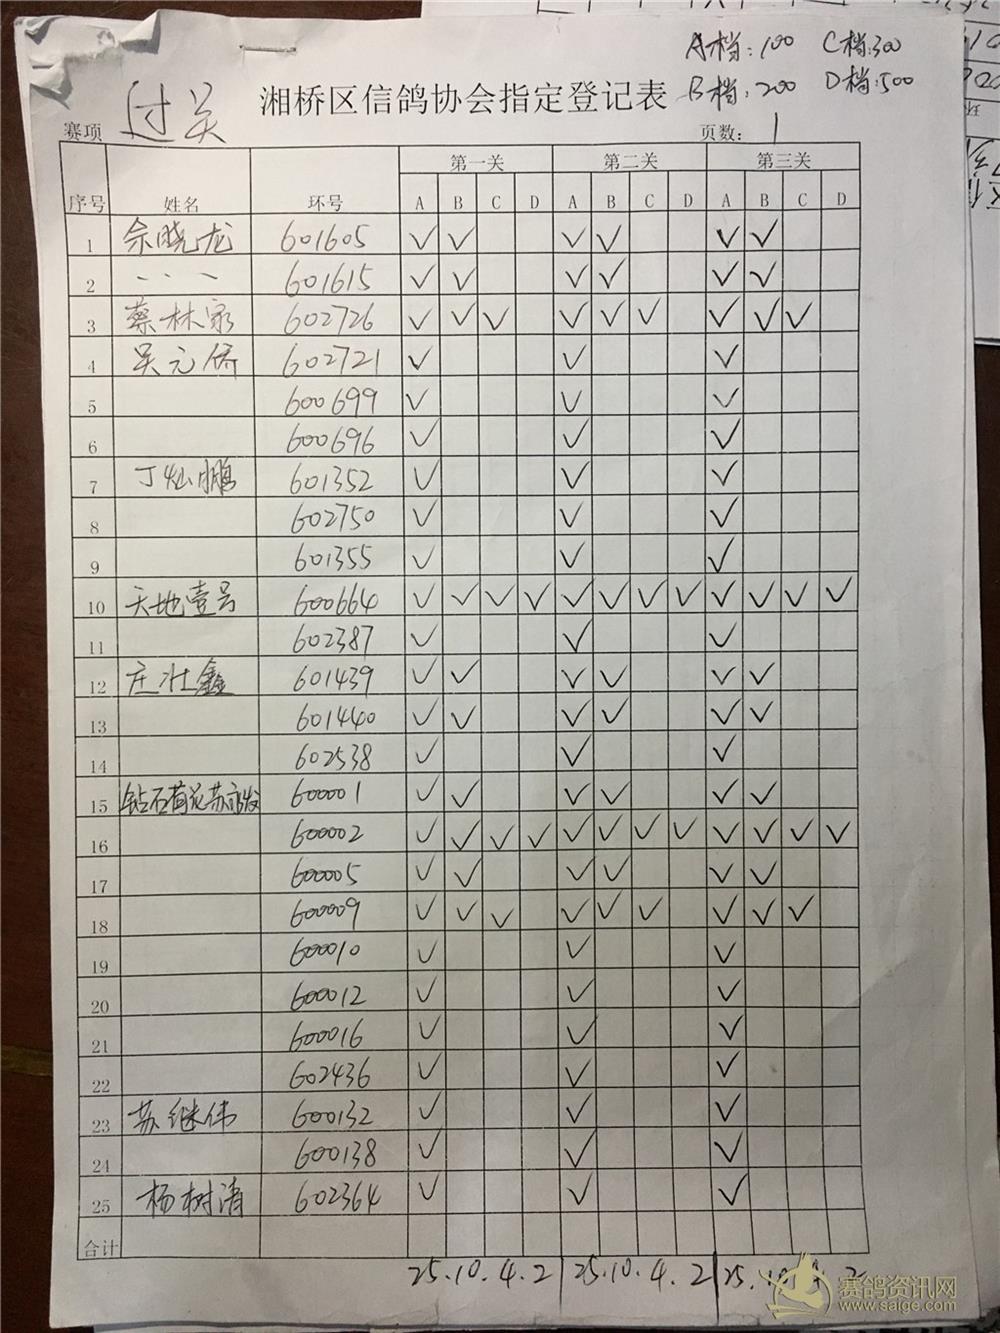 A档:100 C档:300
湘桥区信鸽协会指定登记表 B档:200 D档:500
赛项 过关 页数: 1
序号 姓名 环号 第一关 第二关 第三关
A B C D A B C D A B C D
1 余晓龙 601605 ✓ ✓ ✓ ✓ ✓ ✓
2 、、、 601615 ✓ ✓ ✓ ✓ ✓ ✓
3 蔡林家 602726 ✓ ✓ ✓ ✓ ✓ ✓ ✓ ✓ ✓
4 吴元侨 602721 ✓ ✓ ✓
5 600699 ✓ ✓ ✓
6 600696 ✓ ✓ ✓
7 丁灿鹏 601352 ✓ ✓ ✓
8 602750 ✓ ✓ ✓
9 601355 ✓ ✓ ✓
10 天地壹号 600664 ✓ ✓ ✓ ✓ ✓ ✓ ✓ ✓ ✓ ✓ ✓ ✓
11 602387 ✓ ✓ ✓
12 庄壮鑫 601439 ✓ ✓ ✓ ✓ ✓ ✓
13 601440 ✓ ✓ ✓ ✓ ✓ ✓
14 602538 ✓ ✓ ✓
15 钻石荷花苏永发 600001 ✓ ✓ ✓ ✓ ✓ ✓
16 600002 ✓ ✓ ✓ ✓ ✓ ✓ ✓ ✓ ✓ ✓ ✓ ✓
17 600005 ✓ ✓ ✓ ✓ ✓ ✓
18 600009 ✓ ✓ ✓ ✓ ✓ ✓ ✓ ✓ ✓
19 600010 ✓ ✓ ✓
20 600012 ✓ ✓ ✓
21 600016 ✓ ✓ ✓
22 602436 ✓ ✓ ✓
23 苏继伟 600132 ✓ ✓ ✓
24 600138 ✓ ✓ ✓
25 杨树清 602364 ✓ ✓ ✓
合计
25.10.4.2 25.10.4.2 25.10.4.2
赛鸽资讯网
www.saige.com